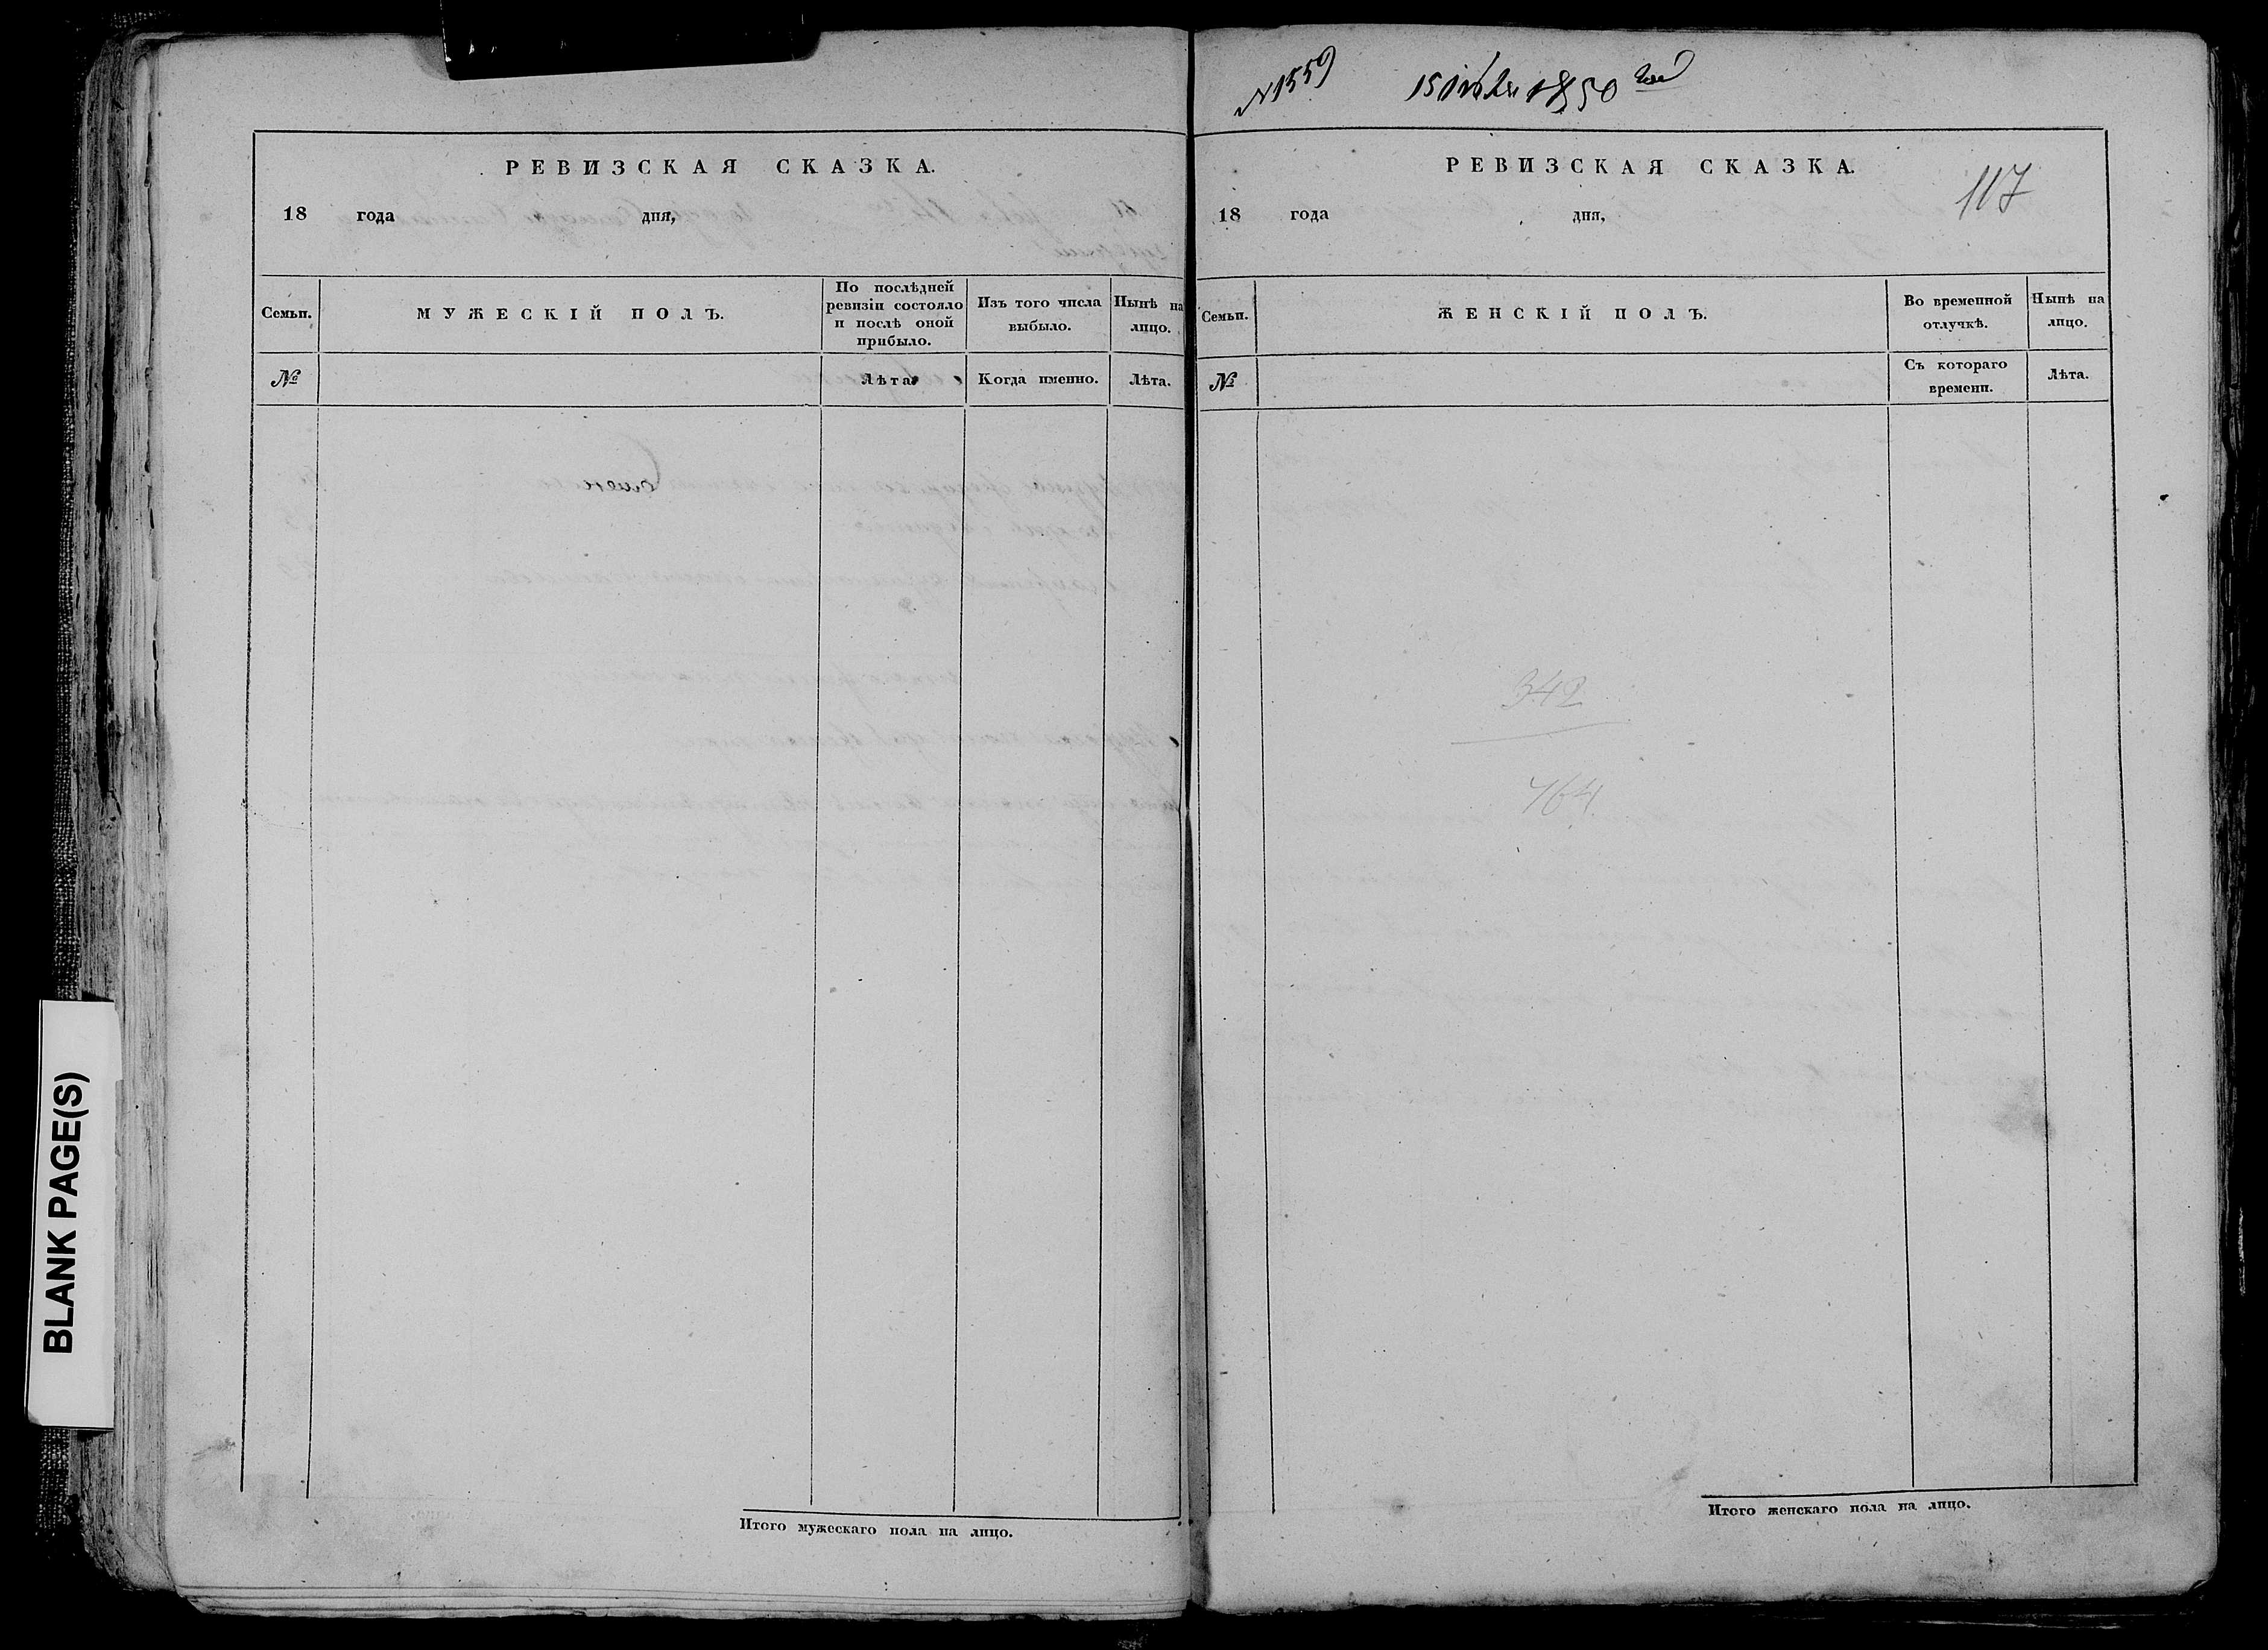 РЕВИЗСКАЯ СКАЗКА.
18 года дня,
Семьи.
МУЖЕСКІЙ ПОЛЪ.
По послѣдней
ревизіи состояло
и послѣ оной
прибыло.
Изъ того числа
выбыло.
Нынѣ на
лицо.
№
Лѣта.
Когда именно.
Лѣта.
Итого мужескаго пола на лицо.
BLANK PAGE(S)
№1559
1850
РЕВИЗСКАЯ СКАЗКА.
117
18 года дня,
Семьи.
ЖЕНСКІЙ ПОЛЪ.
Во временной
отлучкѣ.
Нынѣ на
лицо.
№
Съ котораго
времени.
Лѣта.
342
764
Итого женскаго пола на лицо.